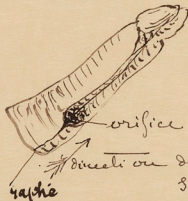 orifice
direction d
s
raphé